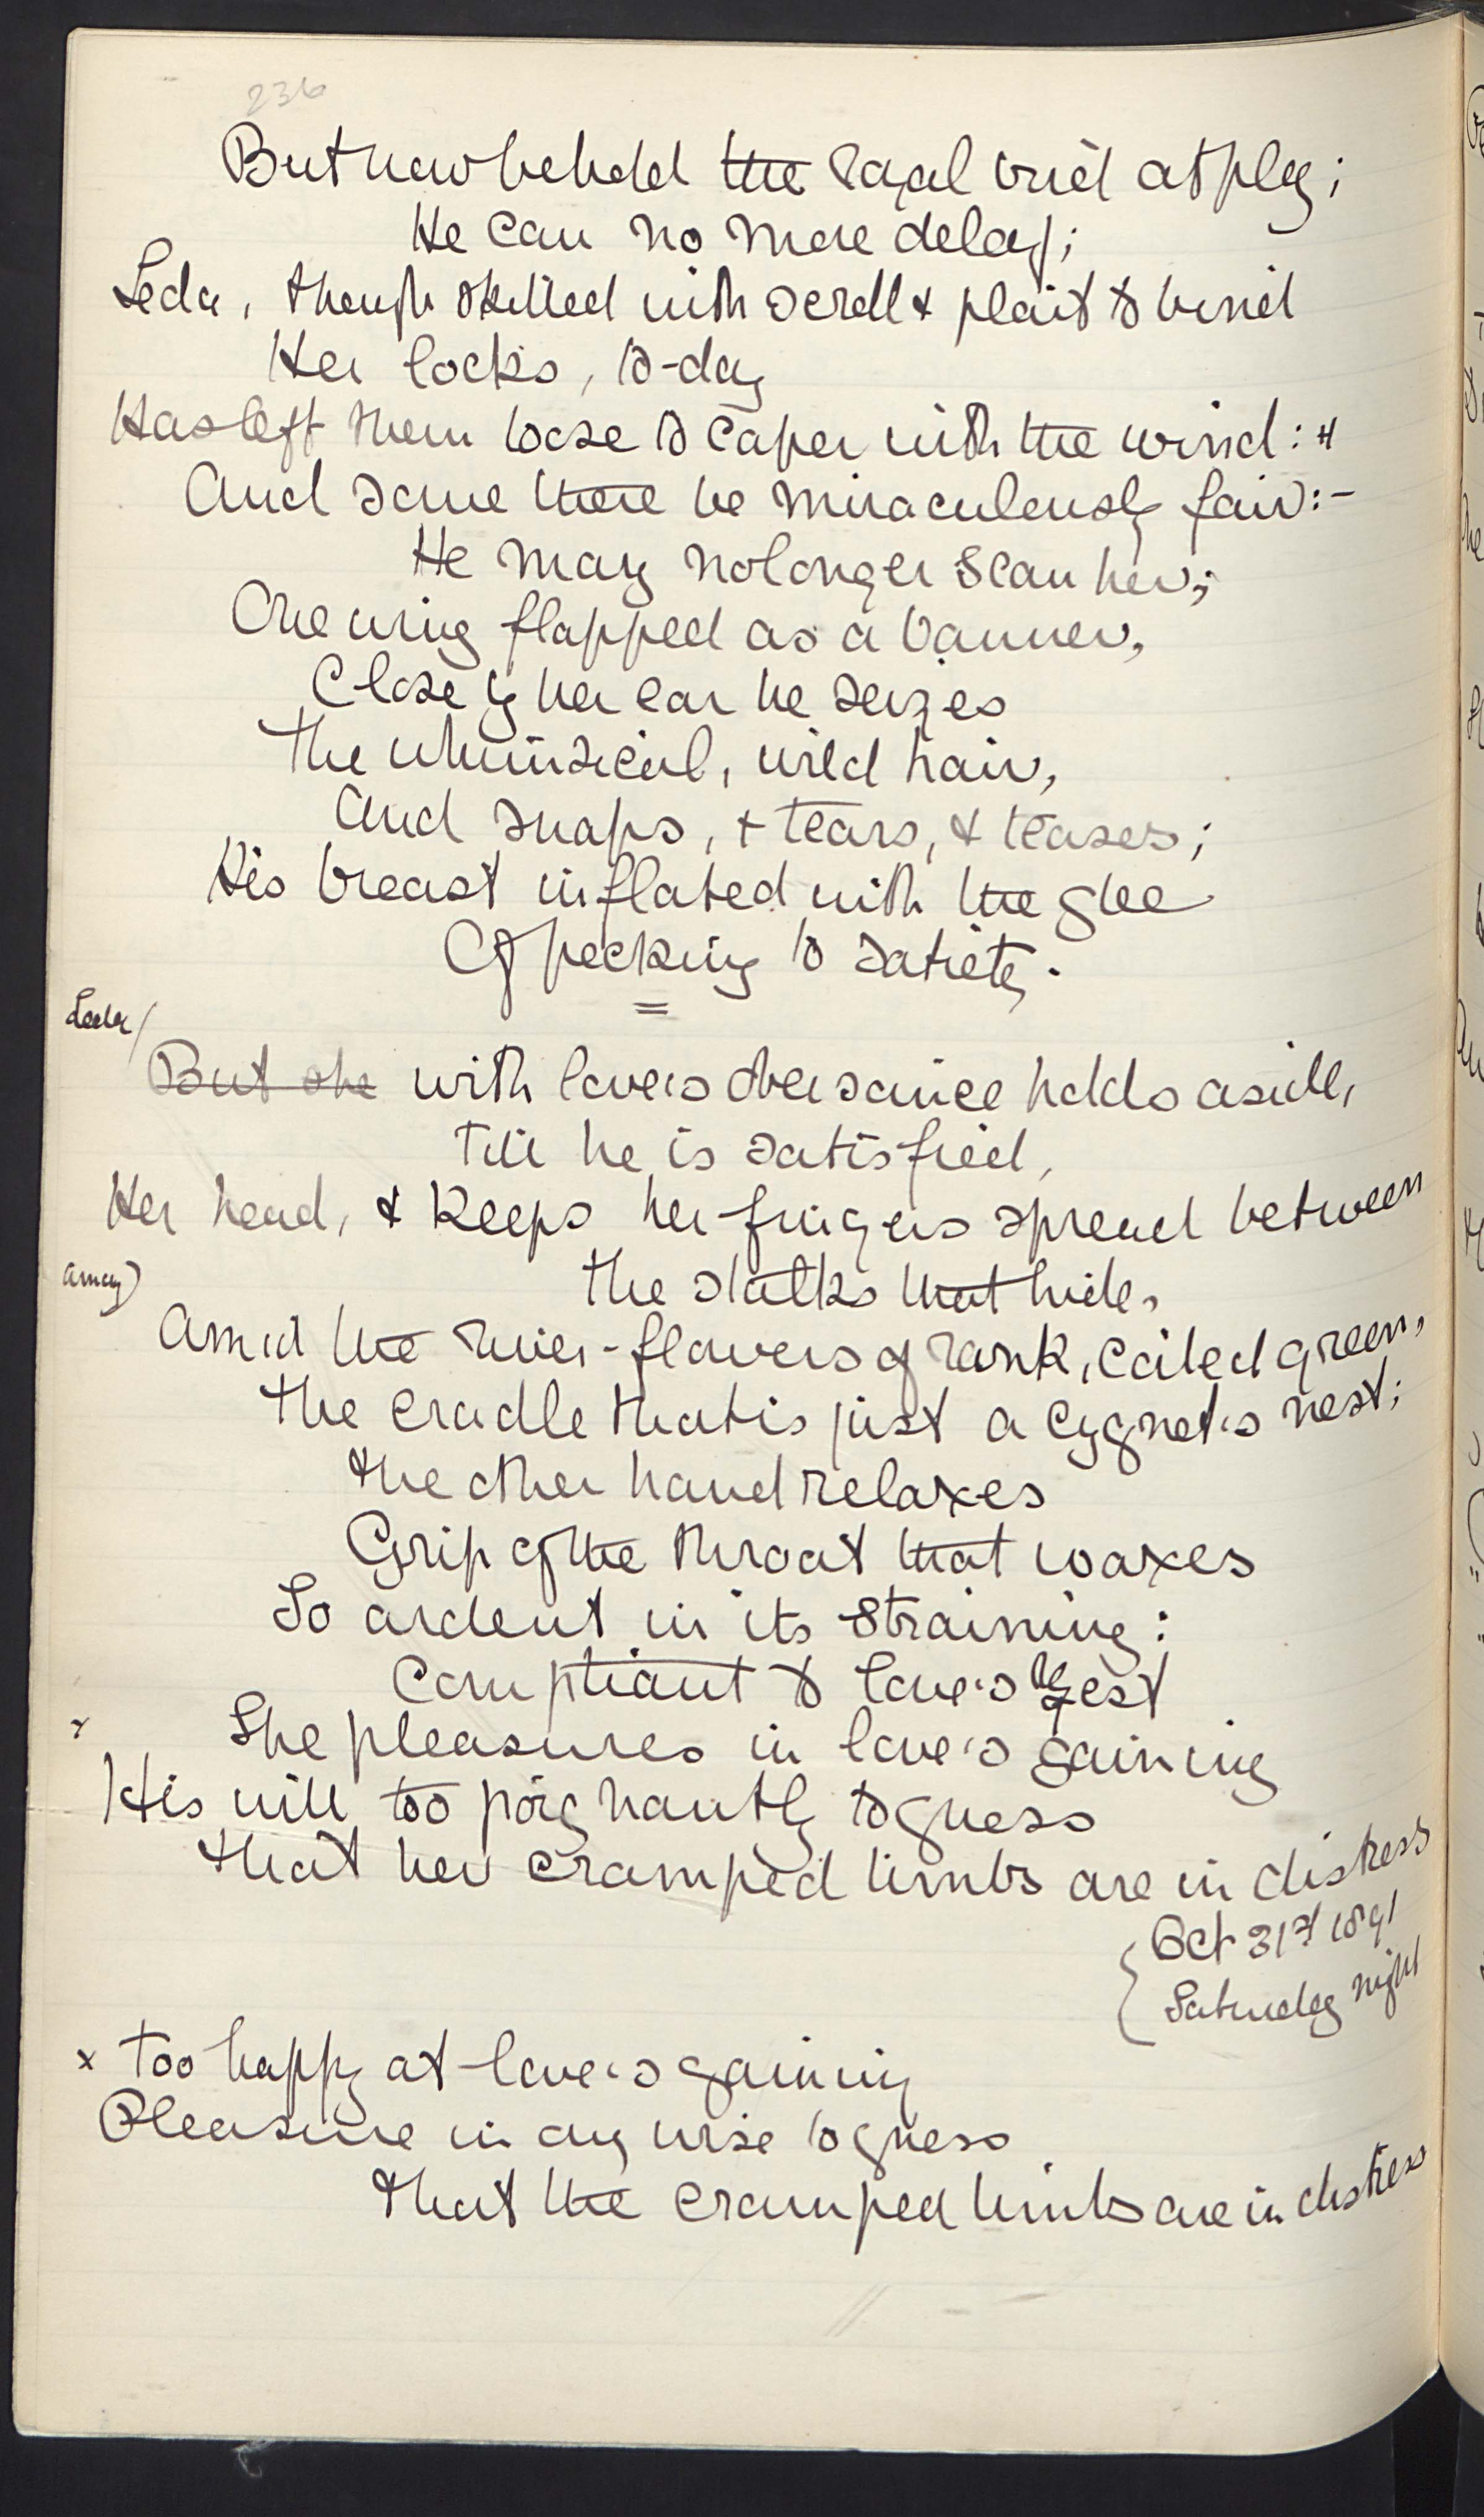 236
But now behold the royal bird at play;
He can no more delay;
Leda, though skilled with scroll & plait to bind
Her locks, to-day
Has left them loose to caper with the wind:
And some there be miraculously fair:-
He may no longer scan her;
One wing flapped as a banner,
Close by her ear he seizes
The whimsical, wild hair,
And snaps, & tears, & teases;
His breast inflated with the glee
Of pecking to satiety.
=
Leda/
But she with love's obeisance holds aside,
Till he is satisfied,
Her head, & keeps her fingers spread between
The stalks that hide,
among)
Amid the river-flowers of rank, coiled green,
The cradle that is just a cygnet's nest;
The other hand relaxes
Grip of the throat that waxes
So ardent in its straining:
Compliant to love's zest
x She pleasures in love's gaining
His will too poignantly to guess
That her cramped limbs are in distress
{Oct 31st 1891
Saturday night
x Too happy at love's gaining
Pleasure in any wise to guess
That the cramped limbs are in distress